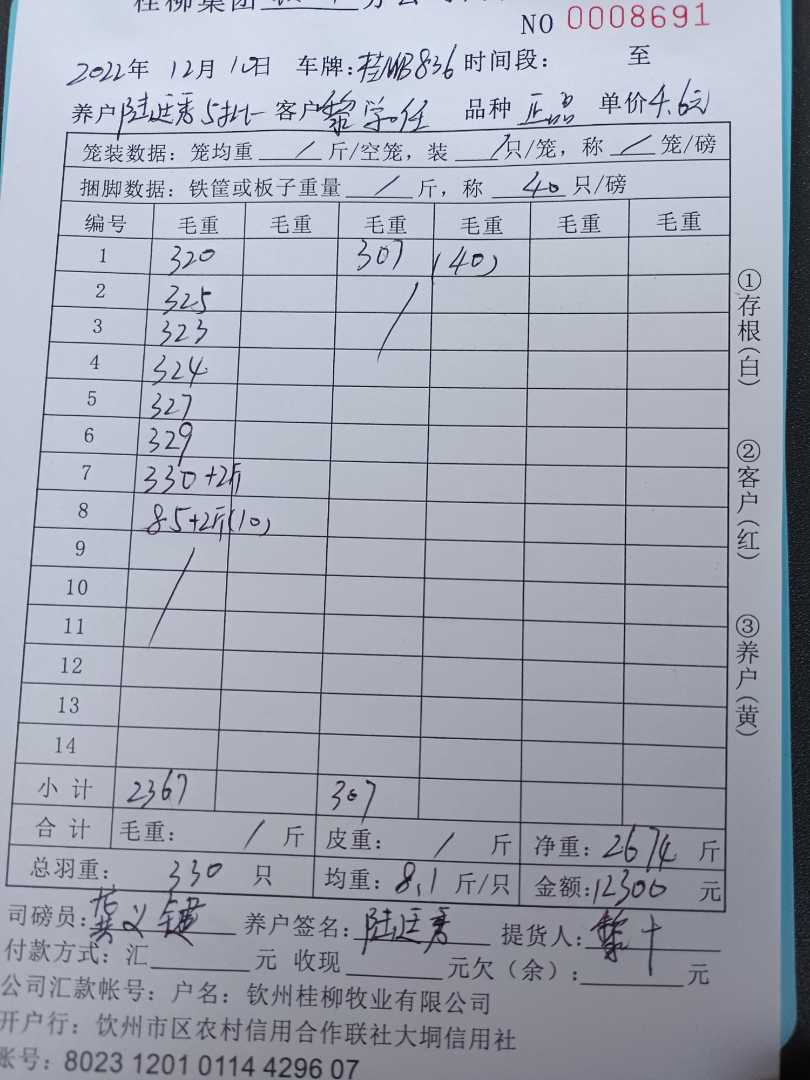 桂柳集团
NO 0008691
2022年 12月10日 车牌:桂MB836 时间段: 至
养户陆廷秀5批一 客户黎学任 品种 正品 单价4.6元
笼装数据：笼均重 / 斤/空笼，装 / 只/笼，称 / 笼/磅
捆脚数据：铁筐或板子重量 / 斤，称 40 只/磅
编号 毛重 毛重 毛重 毛重 毛重 毛重
1 320 307 (40)
2 325 /
3 323
4 324
5 327
6 329
7 330+2斤
8 85+2斤(10)
9 /
10
11
12
13
14
小 计 2367 307
合 计 毛重: / 斤 皮重: / 斤 净重: 2674 斤
总羽重: 330 只 均重: 8.1 斤/只 金额: 12300 元
司磅员: 养户签名: 陆廷秀 提货人: 黎
付款方式: 汇 元 收现 元欠（余）: 元
公司汇款帐号: 户名: 钦州桂柳牧业有限公司
开户行: 钦州市区农村信用合作联社大垌信用社
账号: 8023 1201 0114 4296 07
①存根(白)
②客户(红)
③养户(黄)